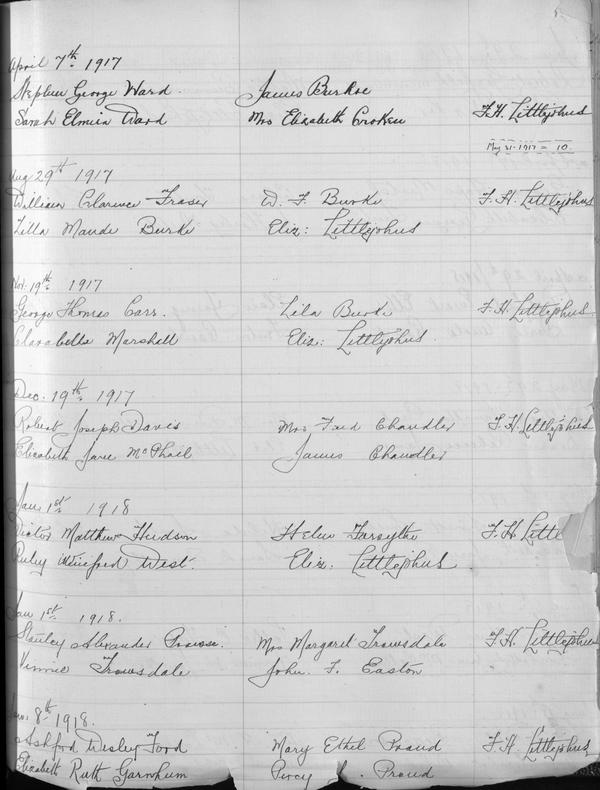 April 7th 1917
Stephen George Ward. James Burkoe F. H. Littlejohns
Sarah Elmira Ward Mrs Elizabeth Croken
May 31-1917 = 10.
Aug 29th 1917
William Clarence Fraser W. F. Burke F. H. Littlejohns
Lilla Maude Burke Eliz: Littlejohns
Nov. 19th 1917
George Thomas Carr. Lila Burke F. H. Littlejohns
Clarabelle Marshall Eliz: Littlejohns.
Dec. 19th 1917
Robert Joseph Davis Mrs Ford Chandler F. H. Littlejohns
Elizabeth Jane McPhail James Chandler
Jan. 1st 1918
Victor Matthew Hudson Helen Forsythe F. H. Little
Ruby Winiford West. Eliz. Littlejohns
Jan 1st 1918.
Stanley Alexander Prowse. Mrs Margaret Trowsdale F. H. Littlejohns
Vinnie Trowsdale John. F. Easton
Jan. 8th 1918.
Ashford Wesley Ford Mary Ethel Proud F. H. Littlejohns
Elizabeth Ruth Garnhum Percy Proud